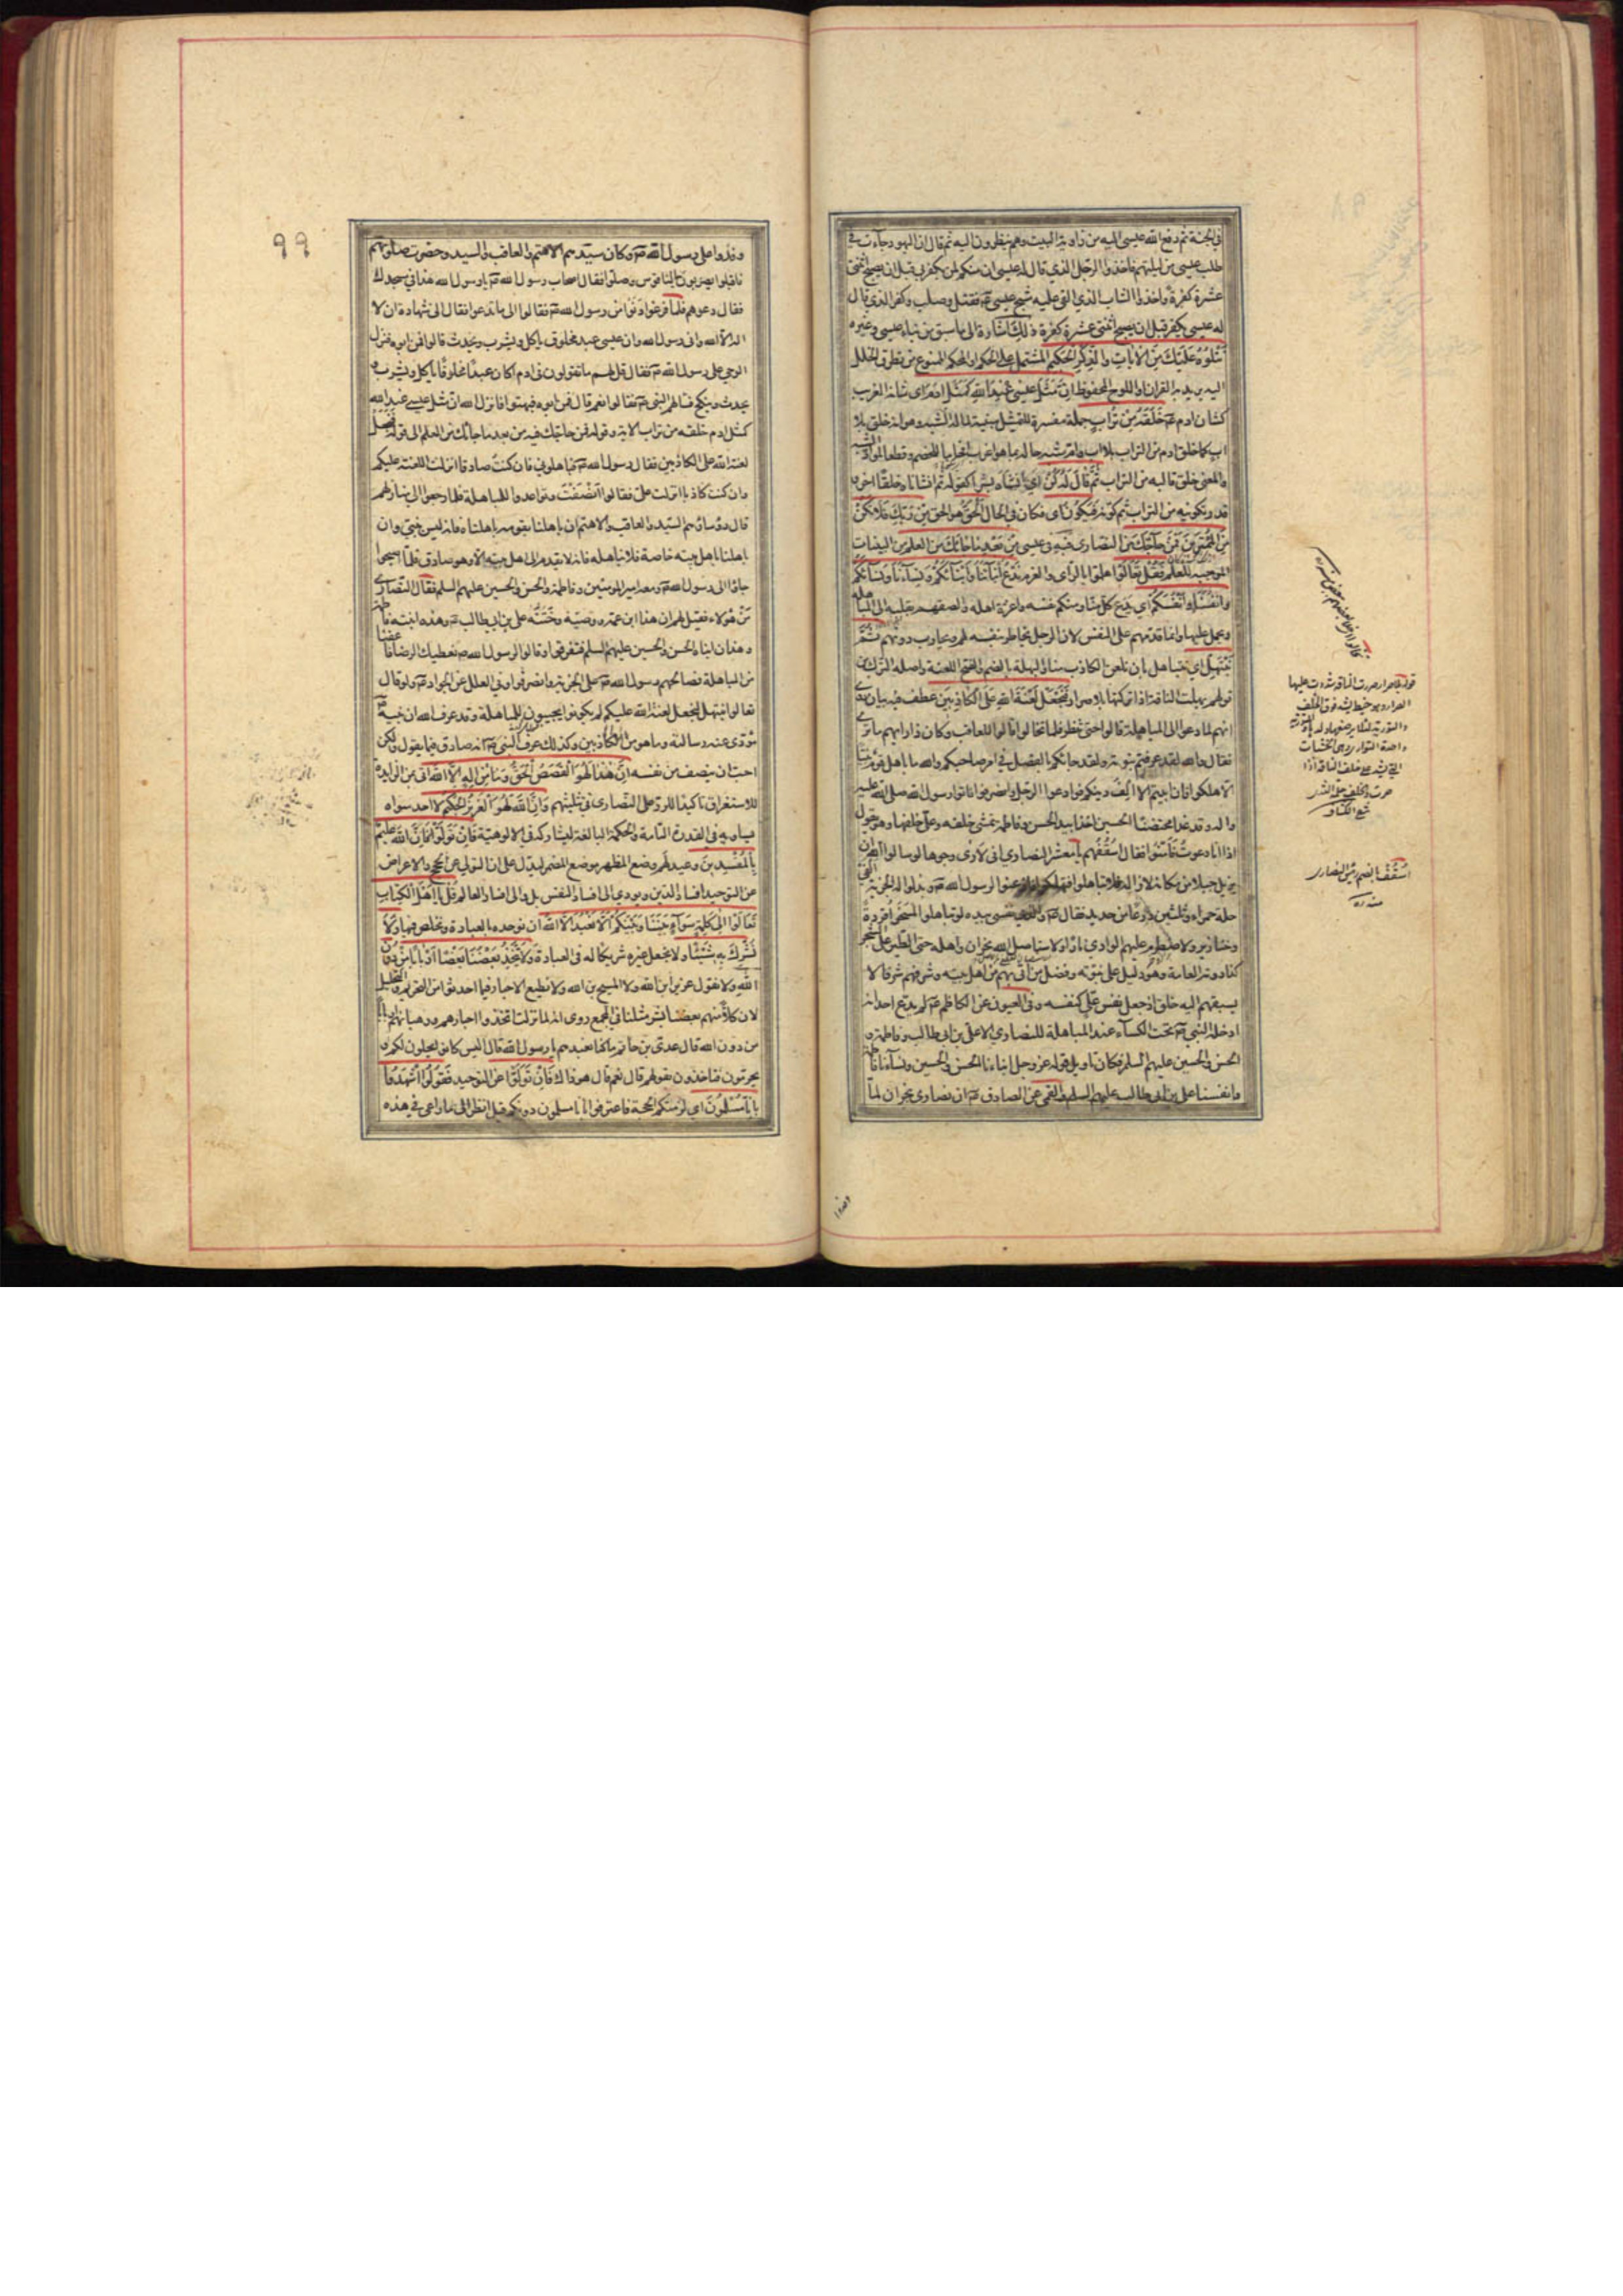 في الجنة ثم رفع الله عيسى اليه من زاوية البيت وهم ينظرون اليه ثم قال ان اليهود جاءت في
طلب عيسى من ليلتهم فاخذوا الرجل الذي قال له عيسى ان منكم لمن يكفر بي قبل ان يصبح اثنتي
عشرة كفرة واخذوا الشاب الذي القي عليه شبح عيسى فقتل وصلب وكفر الذي قال
له عيسى يكفر قبل ان يصبح اثنتي عشرة كفرة ذلك اشارة الى ما سبق من نباء عيسى وغيره
نتلوه عليك من الايات والذكر الحكيم المشتمل على الحكم او المحكم الممنوع من تطرق الخلل
اليه يريد به القران او اللوح المحفوظ ان مثل عيسى عند الله كمثل ادم اي شانه الغريب
كشان ادم خلقه من تراب جملة مفسرة للتمثيل مبينة لما له الشبه وهو انه خلق بلا
اب كما خلق ادم من التراب بلا اب وام شبه حاله بما هو اغرب افحاما للخصم وقطعا لمواد الشبه
والمعنى خلق قالبه من التراب ثم قال له كن اي انشاه بشرا كقوله ثم انشاناه خلقا اخر او
قدر تكوينه من التراب ثم كونه فيكون اي فكان في الحال الحق هو الحق من ربك فلا تكن
من الممترين فمن حاجك من النصارى فيه في عيسى من بعد ما جاءك من العلم من البينات
الموجبة للعلم فقل تعالوا هلموا بالراي والعزم ندع ابناءنا وابناءكم ونساءنا ونساءكم
وانفسنا وانفسكم اي يدع كل منا ومنكم نفسه واعزة اهله والصقهم بقلبه الى المباهلة
ويحمل عليها وانما قدمهم على النفس لان الرجل يخاطر بنفسه لهم ويحارب دونهم ثم
نبتهل اي نتباهل بان نلعن الكاذب منا والبهلة بالضم والفتح اللعنة واصله الترك من
قولهم بهلت الناقة اذا تركتها بلا صرار فنجعل لعنة الله على الكاذبين عطف فيه بيان روي
انهم لما دعوا الى المباهلة قالوا حتى ننظر فلما تخالوا قالوا للعاقب وكان ذا رايهم ما ترى
فقال والله لقد عرفتم نبوته ولقد جاءكم بالفصل في امر صاحبكم والله ما باهل قوم نبيا
الا هلكوا فان ابيتم الا الف دينكم فوادعوا الرجل وانصرفوا فاتوا رسول الله صلى الله عليه
واله وقد غدا محتضنا الحسين اخذا بيد الحسن وفاطمة تمشي خلفه وعلي خلفها وهو يقول
اذا انا دعوت فامنوا فقال اسقفهم يا معشر النصارى اني لارى وجوها لو سالوا الله ان
يزيل جبلا من مكانه لازاله فلا تباهلوا فتهلكوا فاذعنوا لرسول الله وبذلوا له الجزية الفي
حلة حمراء وثلثين درعا من حديد فقال والذي نفسي بيده لو تباهلوا لمسخوا قردة
وخنازير ولاضطرم عليهم الوادي نارا ولاستاصل الله نجران واهله حتى الطير على الشجر
كذا روته العامة وهو دليل على نبوته وفضل من اتى بهم من اهل بيته وشرفهم شرفا لا
يسبقهم اليه خلق اذ جعل نفس علي كنفسه وفي العيون عن الكاظم لم يدع احد انه
ادخله النبي تحت الكساء عند المباهلة للنصارى الا علي بن ابي طالب وفاطمة و
الحسن والحسين عليهم السلم فكان تاويل قوله عز وجل ابناءنا الحسن والحسين ونساءنا فاطمة
وانفسنا علي بن ابي طالب عليهم السلم والقمي عن الصادق ان نصارى نجران لما
قوله بلا صرار صررت الناقة شددت عليها
الصرار وهو خيط يشد فوق الخلف
اسقف بالضم رئيس النصارى
٩٩
وفدوا على رسول الله وكان سيدهم الاهتم والعاقب والسيد وحضرت صلوتهم
فاقبلوا يضربون بالناقوس وصلوا فقال اصحاب رسول الله يا رسول الله هذا في مسجدك
فقال دعوهم فلما فرغوا دنوا من رسول الله فقالوا الى ما تدعوا فقال الى شهادة ان لا
اله الا الله واني رسول الله وان عيسى عبد مخلوق ياكل ويشرب ويحدث قالوا فمن ابوه فنزل
الوحي على رسول الله فقال قل لهم ما تقولون في ادم اكان عبدا مخلوقا ياكل ويشرب و
يحدث وينكح فسالهم النبي فقالوا نعم قال فمن ابوه فبهتوا فانزل الله ان مثل عيسى عند الله
كمثل ادم خلقه من تراب الاية وقوله فمن حاجك فيه من بعد ما جاءك من العلم الى قوله فنجعل
لعنة الله على الكاذبين فقال رسول الله فباهلوني فان كنت صادقا انزلت اللعنة عليكم
وان كنت كاذبا انزلت علي فقالوا انصفت فتواعدوا للمباهلة فلما رجعوا الى منازلهم
قال رؤساؤهم السيد والعاقب والاهتم ان باهلنا بقومه باهلناه فانه ليس بنبي وان
باهلنا باهل بيته خاصة فلا نباهله فانه لا يقدم الى اهل بيته الا وهو صادق فلما اصبحوا
جاؤا الى رسول الله ومعه امير المؤمنين وفاطمة والحسن والحسين عليهم السلم فقال النصارى
من هؤلاء فقيل لهم ان هذا ابن عمه ووصيه وختنه علي بن ابي طالب وهذه ابنته فاطمة
وهذان ابناه الحسن والحسين عليهم السلم ففرقوا وقالوا لرسول الله نعطيك الرضا فاعفنا
من المباهلة فصالحهم رسول الله على الجزية وانصرفوا وفي العلل عن الجواد ولو قال
تعالوا نبتهل فنجعل لعنة الله عليكم لم يكونوا يجيبون للمباهلة وقد عرف الله ان نبيه
مؤدى عنه رسالته وما هو من الكاذبين وكذلك عرف النبي انه صادق فيما يقول ولكن
احب ان ينصف من نفسه ان هذا لهو القصص الحق وما من اله الا الله اتى بمن المزيدة
للاستغراق تاكيدا للرد على النصارى في تثليثهم وان الله لهو العزيز الحكيم لا احد سواه
يساويه في القدرة التامة والحكمة البالغة ليشاركه في الالوهية فان تولوا فان الله عليم
بالمفسدين وعيد لهم وضع المظهر موضع المضمر ليدل على ان التولي عن الحجج والاعراض
عن التوحيد افساد للدين ويودي الى افساد النفس بل والى افساد العالم قل يا اهل الكتاب
تعالوا الى كلمة سواء بيننا وبينكم الا نعبد الا الله ان نوحده بالعبادة ونخلص فيها ولا
نشرك به شيئا ولا نجعل غيره شريكا له في العبادة ولا يتخذ بعضنا بعضا اربابا من دون
الله ولا نقول عزير ابن الله ولا المسيح بن الله ولا نطيع الاحبار فيما احدثوا من التحريم والتحليل
لان كلا منهم بعضنا بشر مثلنا في المجمع روي انه لما نزلت اتخذوا احبارهم ورهبانهم اربابا
من دون الله قال عدي بن حاتم ما كنا نعبدهم يا رسول الله قال اليس كانوا يحلون لكم و
يحرمون فتاخذون بقولهم قال نعم قال هو ذاك فان تولوا عن التوحيد فقولوا اشهدوا
بانا مسلمون اي لزمتكم الحجة فاعترفوا بانا مسلمون دونكم قيل انظر الى ما راعى في هذه